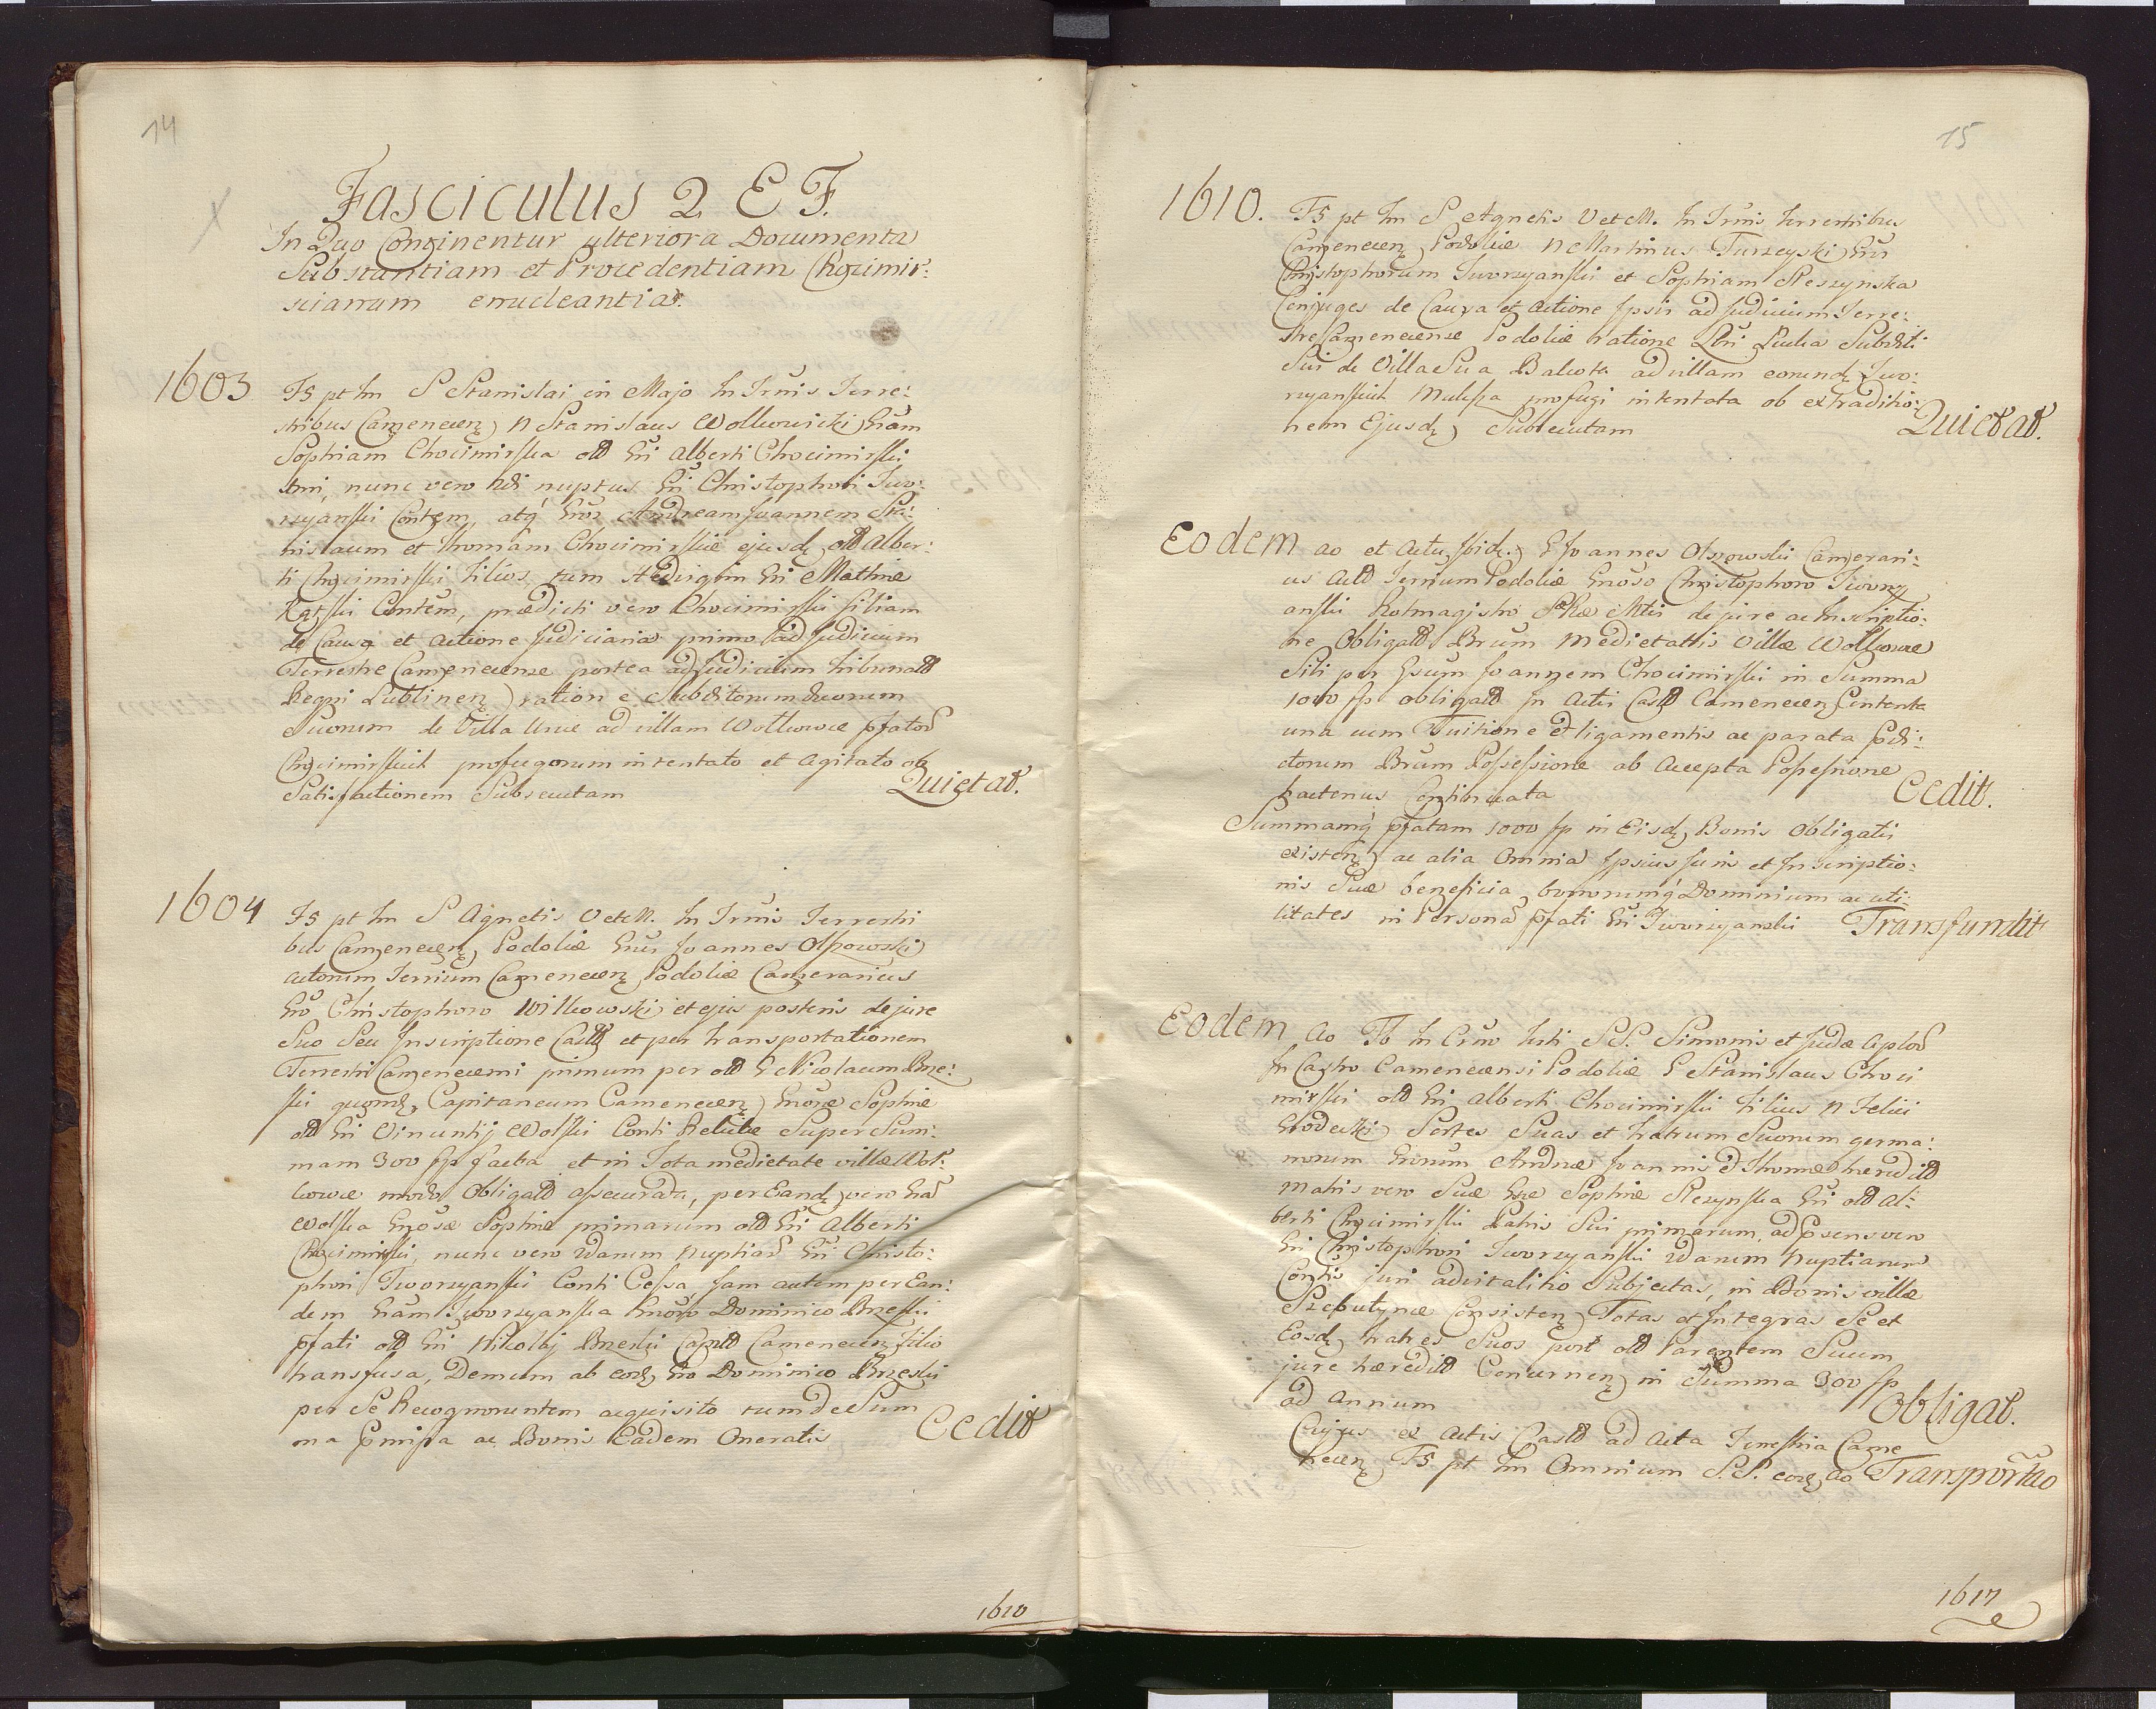 14
Fasciculus 2 E F.
In Quo Continentur ulteriora Documenta
Substantiam et Procedentiam Chocimir:
scianam enucleantia.
1603
F5 pt fm S Stanislai in Majo In Trnis Terre:
stribus Camenecen N Stanislaus Wolkowicki Gnam
Sophiam Chocimirska old Gni Alberti Chocimirski
nunc vero 2di nuptus Gni Christophori Iwo:
rzyanski Contem, atq Gnos Andream Joannem Sta:
nislaum et Thomam Chocimirskie ejusd old Alber:
ti Chocimirski Filios tum Hedvigim Gni Mathiae
Contem, praedicti vero Chocimirski filiam
de Causa et actione Judiciaria primo ad Judicium
Terrestre Camenecense postea ad Judicium Tribunald
Regni Lublinen ratione Subditorum duorum
Suorum de Villa ad villam Wolkowce pfatod
Chocimirskich profugorum intentato et agitato ob
Satisfactionem Subsecutam Quietat.
1604
F5 pt fm S Agnetis V et M. In Trnis Terrestri
bus Camenecen Podoliae Gnus Joannes Olszowski
actorum Terrium Camenecen Podoliae Cameranius
Gno Christophoro Wilkowski et ejus posteris de jure
Suo Seu Inscriptione Castd et per transportationem
Terrestri Camenecensi primum per old G Nicolaum Brze:
ski quond Capitaneum Camenecen Gnosae Sophiae
old Gni Vincentij Wolski Conti Relictae Super Sum:
mam 300 fp facta et in Tota medietate villae Wol:
kowce modo Obligatd assecurata, per Eand vero Gnad
Wolska Gnosae Sophiae primarum old Gni Alberti
Chocimirski, nunc vero 2darum Nuptiard Gni Christo:
phori Tworzyanski Conti Cessa, Jam autem per Ean:
dem Gnam Tworzyanska Gnoso Dominico Brzeski
pfati old Gni Nikolaj Brzeski Captd Camenecen filio
transfusa, Demum ab eod Gno Dominico Brzeski
per Se Recognoscentem acquisito tum de Sum
ma pmissa ac Bonis Eadem Oneratis Cedit
1610
15
1610. F5 pt fm S Agnetis V et M. In Trnis Terrestribus
Camenecen Podoliae N Martinus Turzeyski Gnu
Christophorum Tworzyanski et Sophiam Skeszynska
Conjuges de Causa et actione Ipsis ad Judicium Terre:
stre Camenecense Podoliae ratione Subditi
Sui de Villa Sua Bakota ad villam eorund Two:
rzyanskich profugi intentata ob extraditio:
nem Ejusd Subsecutam Quietat.
Eodem ao et Actu, ibid. G Joannes Olszowski Camerari:
us Actd Terrium Podoliae Gnoso Christophoro Tworzy
anski Rotmagistro SRae Mtis de jure ac Inscriptio:
ne Obligatd Brum Medietatis Villae Wolkowce
Sibi per Gsum Joannem Chocimirski in Summa
1000 fp obligatd In Actis Castd Camenecen Contenta
una cum Tuitione et ligamentis ac parata pdi:
ctorum Brum Possessione ab Accepta Possessione
hactenus Continuata Cedit.
Summamq pfatam 1000 fp in Eisd Bonis Obligatis
existen ac alia Omnia Ipsius Juris et Inscriptio:
nis Suae beneficia bonorumq Dominium ac uti:
litates in Personad pfati Gni Tworzyanski Transfundit
Eodem ao Fb In Crno festi S.S. Simonis et Judae Aplod
In Castro Camenecensi Podoliae G Stanislaus Choci
mirski old Gni Alberti Chocimirski Filius N Felici
Grodecki Sortes Suas et fratrum Suorum germa:
norum Gnrum Andreae Joannis et Thomae haeredtd
Matris vero Suae Gsae Sophiae Skezynska Gni old Al:
berti Chocimirski Patris Sui primarum, ad Psens vero
Gni Christophori Tworzyanski 2darum Nuptiarum
Contis juri advitalitio Subjectas, in Bonis villae
Szeputynce Consisten Totas et Integras Se et
Eosd fratres Suos post old Parentem Suum
jure haereditd Concernen in Summa 300 fp
ad Annum Obligat.
Cujus ex Actis Castd ad Acta Terrestria Came
necen F5 pt fm Omnium S.S. eod ao Transportao
1617